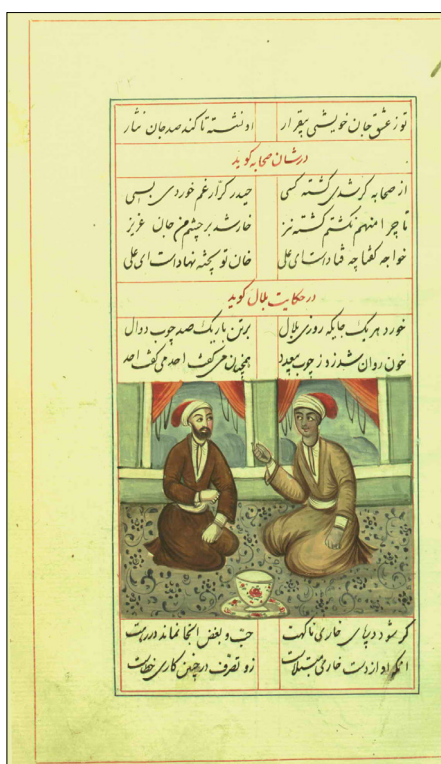 تو ز عشق جان خویشی بیقرار او نشسته تا کند صد جان نثار
در شان صحابه کوید
از صحابه کر شدی کشته کسی حیدر کرّار غم خوردی بسی
تا چرا منهم نکشتم کشته نیز خار شد بر چشم من جان عزیز
خواجه کفتا چه فتاداست ای علی خان تو پخته نهاداست ای علی
در حکایت بلال کوید
خورد هریک جایکه روزی بلال بر تن باریک صد چوب دوال
خون روان شد زو ز چوب بیعدد همچنان می کفت احد می کفت احد
کر شود در پای خاری ناکهت حبّ و بغض انجا نماند در رهت
انکه او از دست خاری مبتلاست زو تصرّف در چنین کاری خطاست